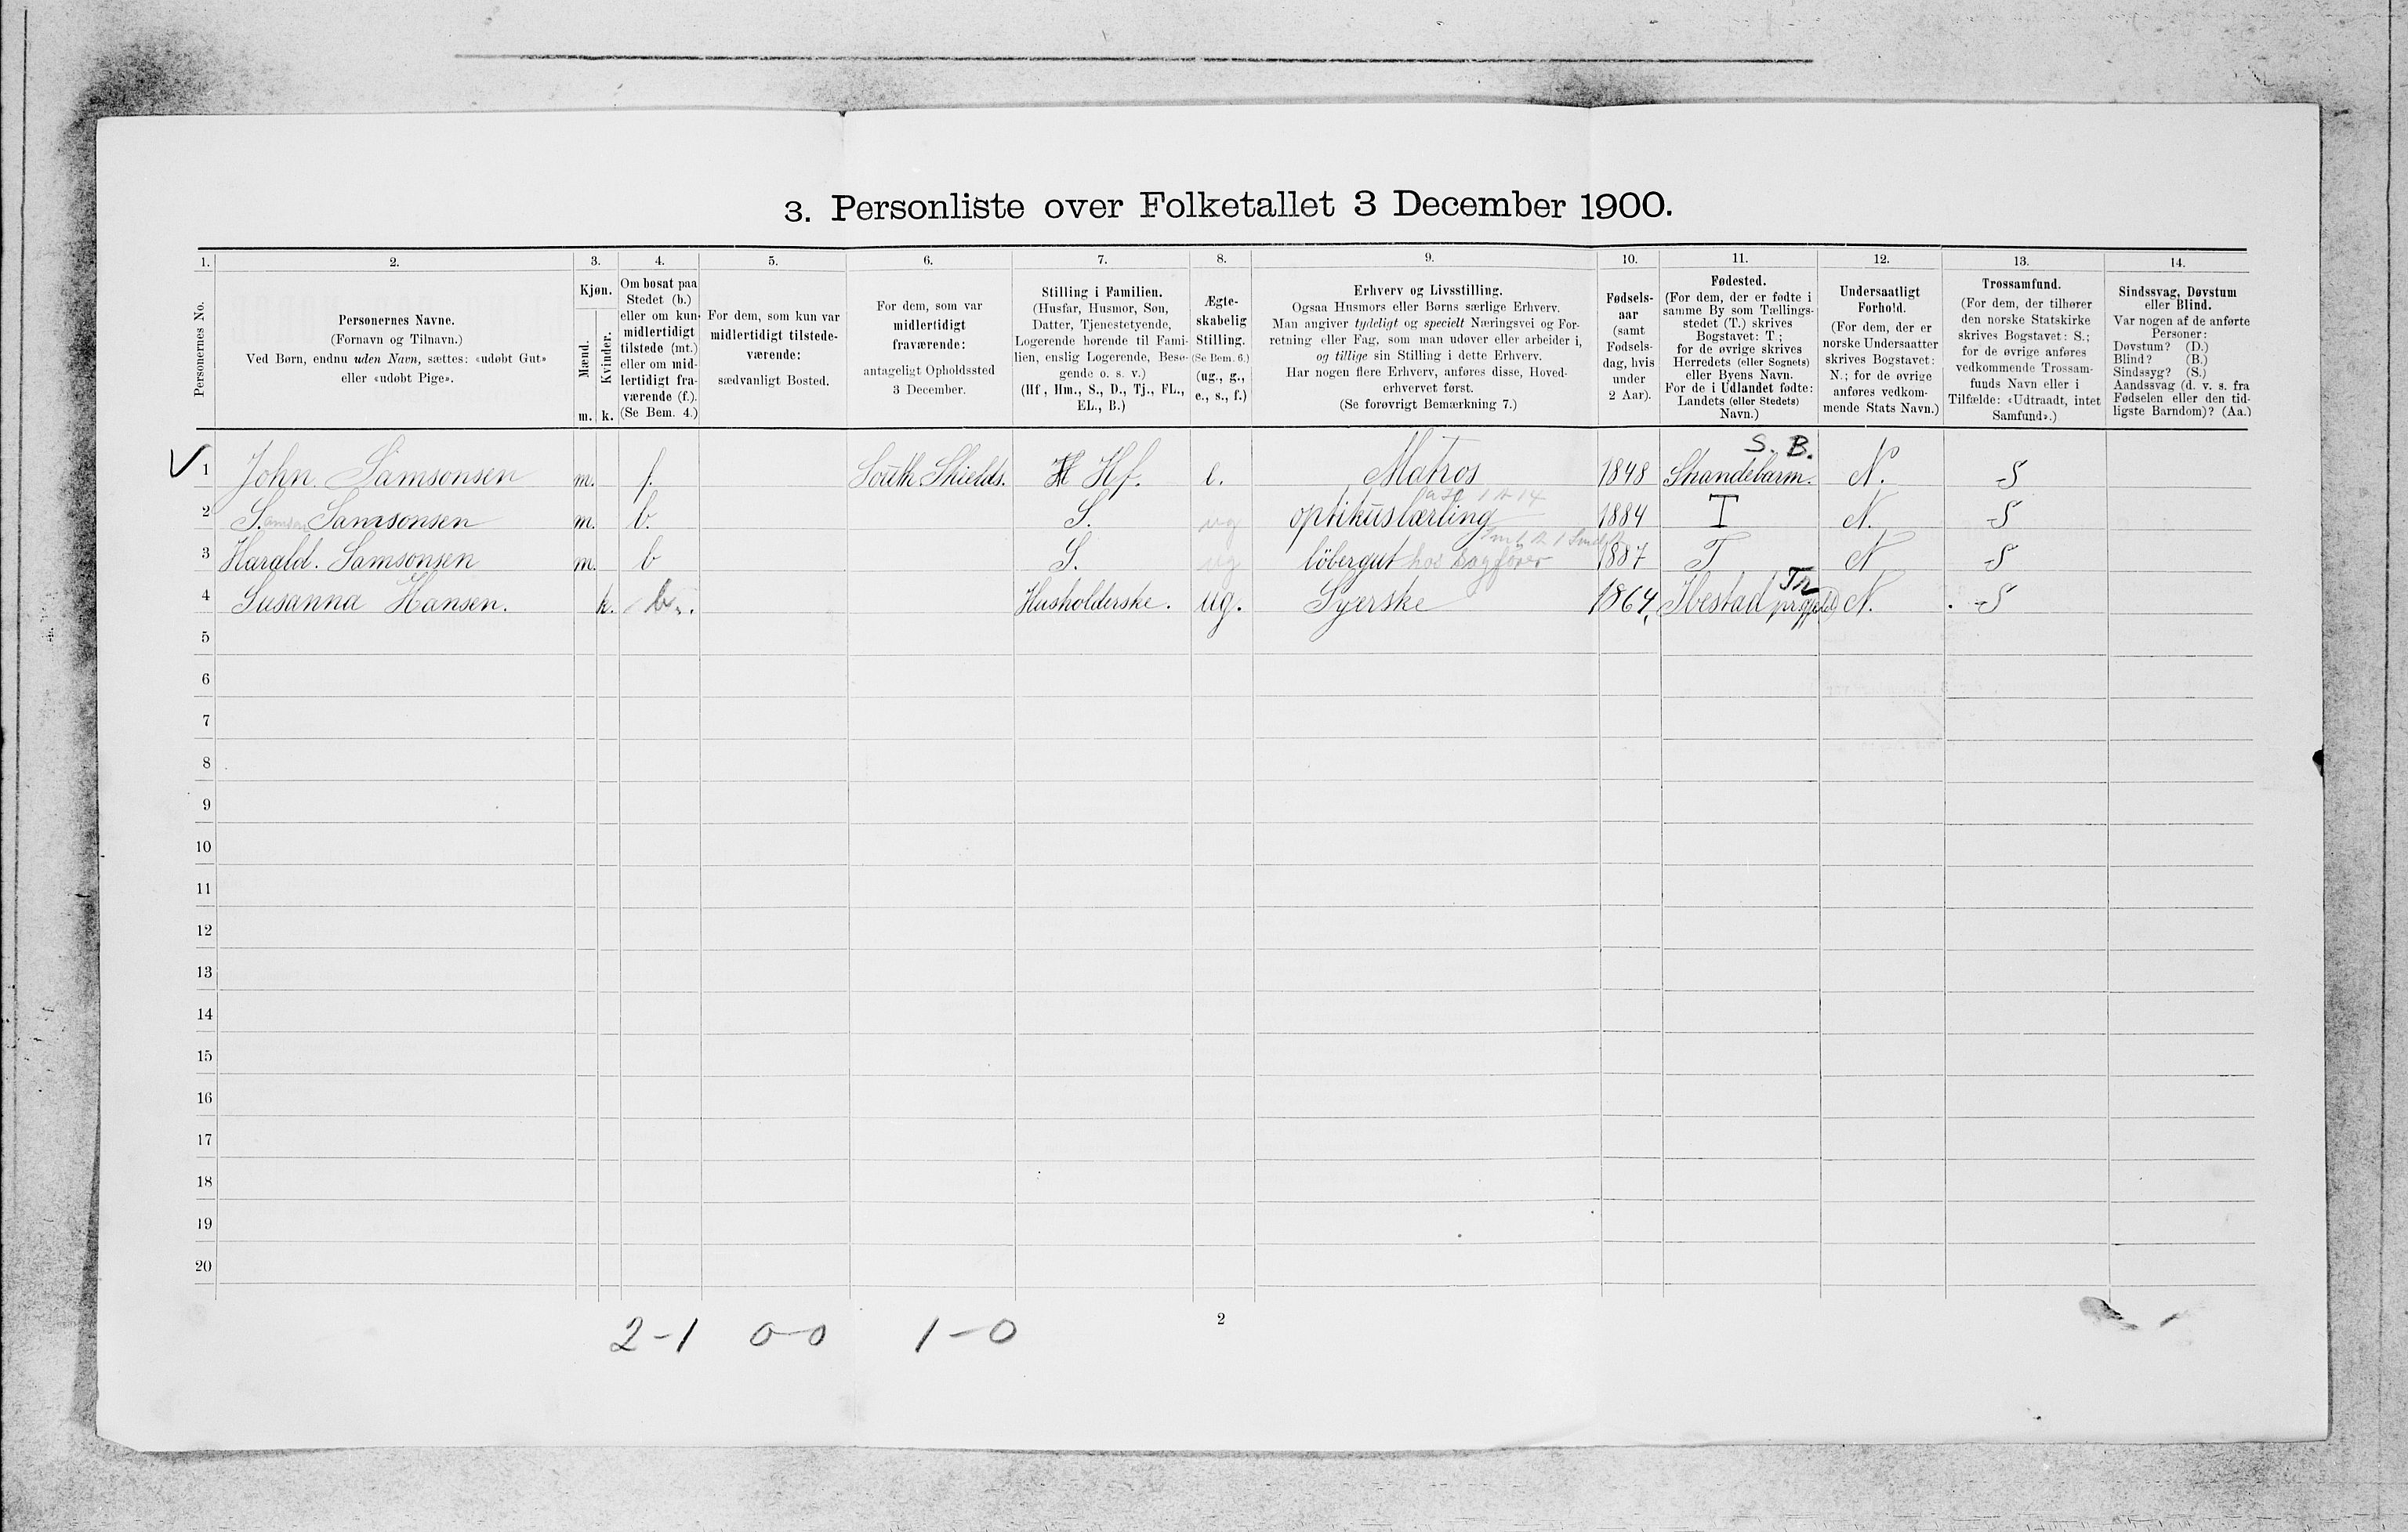 3. Personliste over Folketallet 3 December 1900.
1. 2. 3. 4. 5. 6. 7. 8. 9. 10. 11. 12. 13. 14.
Personernes No.
Personernes Navne.
(Fornavn og Tilnavn.)
Ved Børn, endnu uden Navn, sættes: «udøbt Gut»
eller «udøbt Pige».
Kjøn.
Mænd.
m.
Kvinder.
k.
Om bosat paa
Stedet (b.)
eller om kun
midlertidigt
tilstede (mt.)
eller om mid-
lertidigt fra-
værende (f.).
(Se Bem. 4.)
For dem, som kun var
midlertidigt tilstede-
værende:
sædvanligt Bosted.
For dem, som var
midlertidigt
fraværende:
antageligt Opholdssted
3 December.
Stilling i Familien.
(Husfar, Husmor, Søn,
Datter, Tjenestetyende,
Logerende hørende til Fami-
lien, enslig Logerende, Besø-
gende o. s. v.)
(Hf, Hm., S., D., Tj., FL.,
EL., B.)
Ægte-
skabelig
Stilling.
(Se Bem. 6.)
(ug., g.,
e., s., f.)
Erhverv og Livsstilling.
Ogsaa Husmors eller Børns særlige Erhverv.
Man angiver tydeligt og specielt Næringsvei og For-
retning eller Fag, som man udøver eller arbeider i,
og tillige sin Stilling i dette Erhverv.
Har nogen flere Erhverv, anføres disse, Hoved-
erhvervet først.
(Se forøvrigt Bemærkning 7.)
Fødsels-
aar
(samt
Fødsels-
dag, hvis
under
2 Aar).
Fødested.
(For dem, der er fødte i
samme By som Tællings-
stedet (T.) skrives
Bogstavet: T.;
for de øvrige skrives
Herredets (eller Sognets)
eller Byens Navn.
For de i Udlandet fødte:
Landets (eller Stedets)
Navn.)
Undersaatligt
Forhold.
(For dem, der er
norske Undersaatter
skrives Bogstavet:
N.; for de øvrige
anføres vedkom-
mende Stats Navn.)
Trossamfund.
(For dem, der tilhører
den norske Statskirke
skrives Bogstavet: S.;
for de øvrige anføres
vedkommende Trossam-
funds Navn eller i
Tilfælde: «Udtraadt, intet
Samfund».)
Sindssvag, Døvstum
eller Blind.
Var nogen af de anførte
Personer:
Døvstum? (D.)
Blind? (B.)
Sindssyg? (S.)
Aandssvag (d. v. s. fra
Fødselen eller den tid-
ligste Barndom)? (Aa.)
S. B.
1 John. Samsonsen m. f. South Shields. Hf. e. Matros 1848 Strandebarm. N. S
2 Samson Samsonsen m. b. S. ug optikuslærling 1884 T N. S
3 Harald. Samsonsen m. b S. ug löbergut hos Sagfører 1887 T N S
4 Susanna Hansen. k. b. Husholderske. ug. Syerske 1864, Ibestad prgjeld Tr N. S
5
6
7
8
9
10
11
12
13
14
15
16
17
18
19
20
2-1 0-0 1-0
2